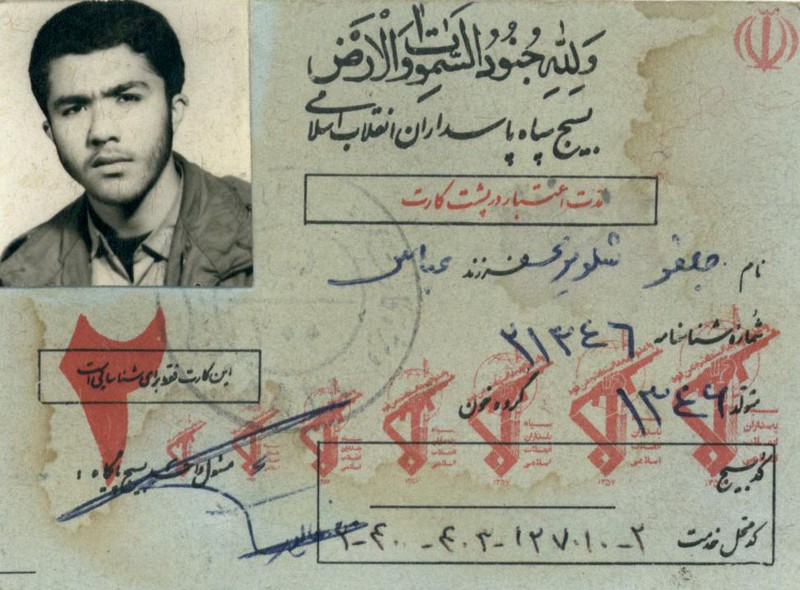 وَلِلّٰهِ جُنُودُ السَّمٰوَاتِ وَالْاَرْضِ
بسیج سپاه پاسداران انقلاب اسلامی
مدت اعتبار در پشت کارت
نام جعفر فرزند عباس
شماره شناسنامه ۲۱۳۴۶
متولد ۱۳۴۶ گروه خون
این کارت فقط برای شناسایی است
۲
سپاه پاسداران انقلاب اسلامی
۱۳۵۷
مسئول واحد بسیج پایگاه :
کد بسیج
کد محل خدمت